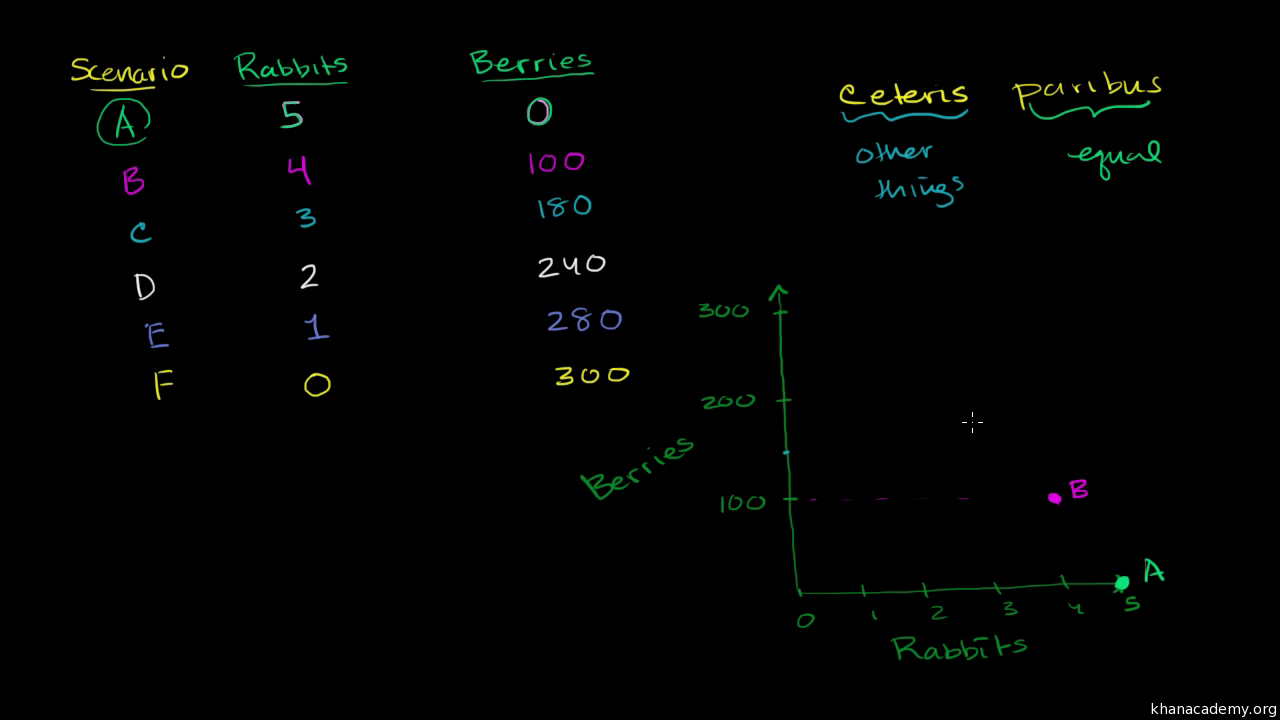 Scenario Rabbits Berries
A 5 0
B 4 100
C 3 180
D 2 240
E 1 280
F 0 300
Ceteris paribus
other equal
things
300
200
Berries
100
B
A
0 1 2 3 4 5
Rabbits
khanacademy.org